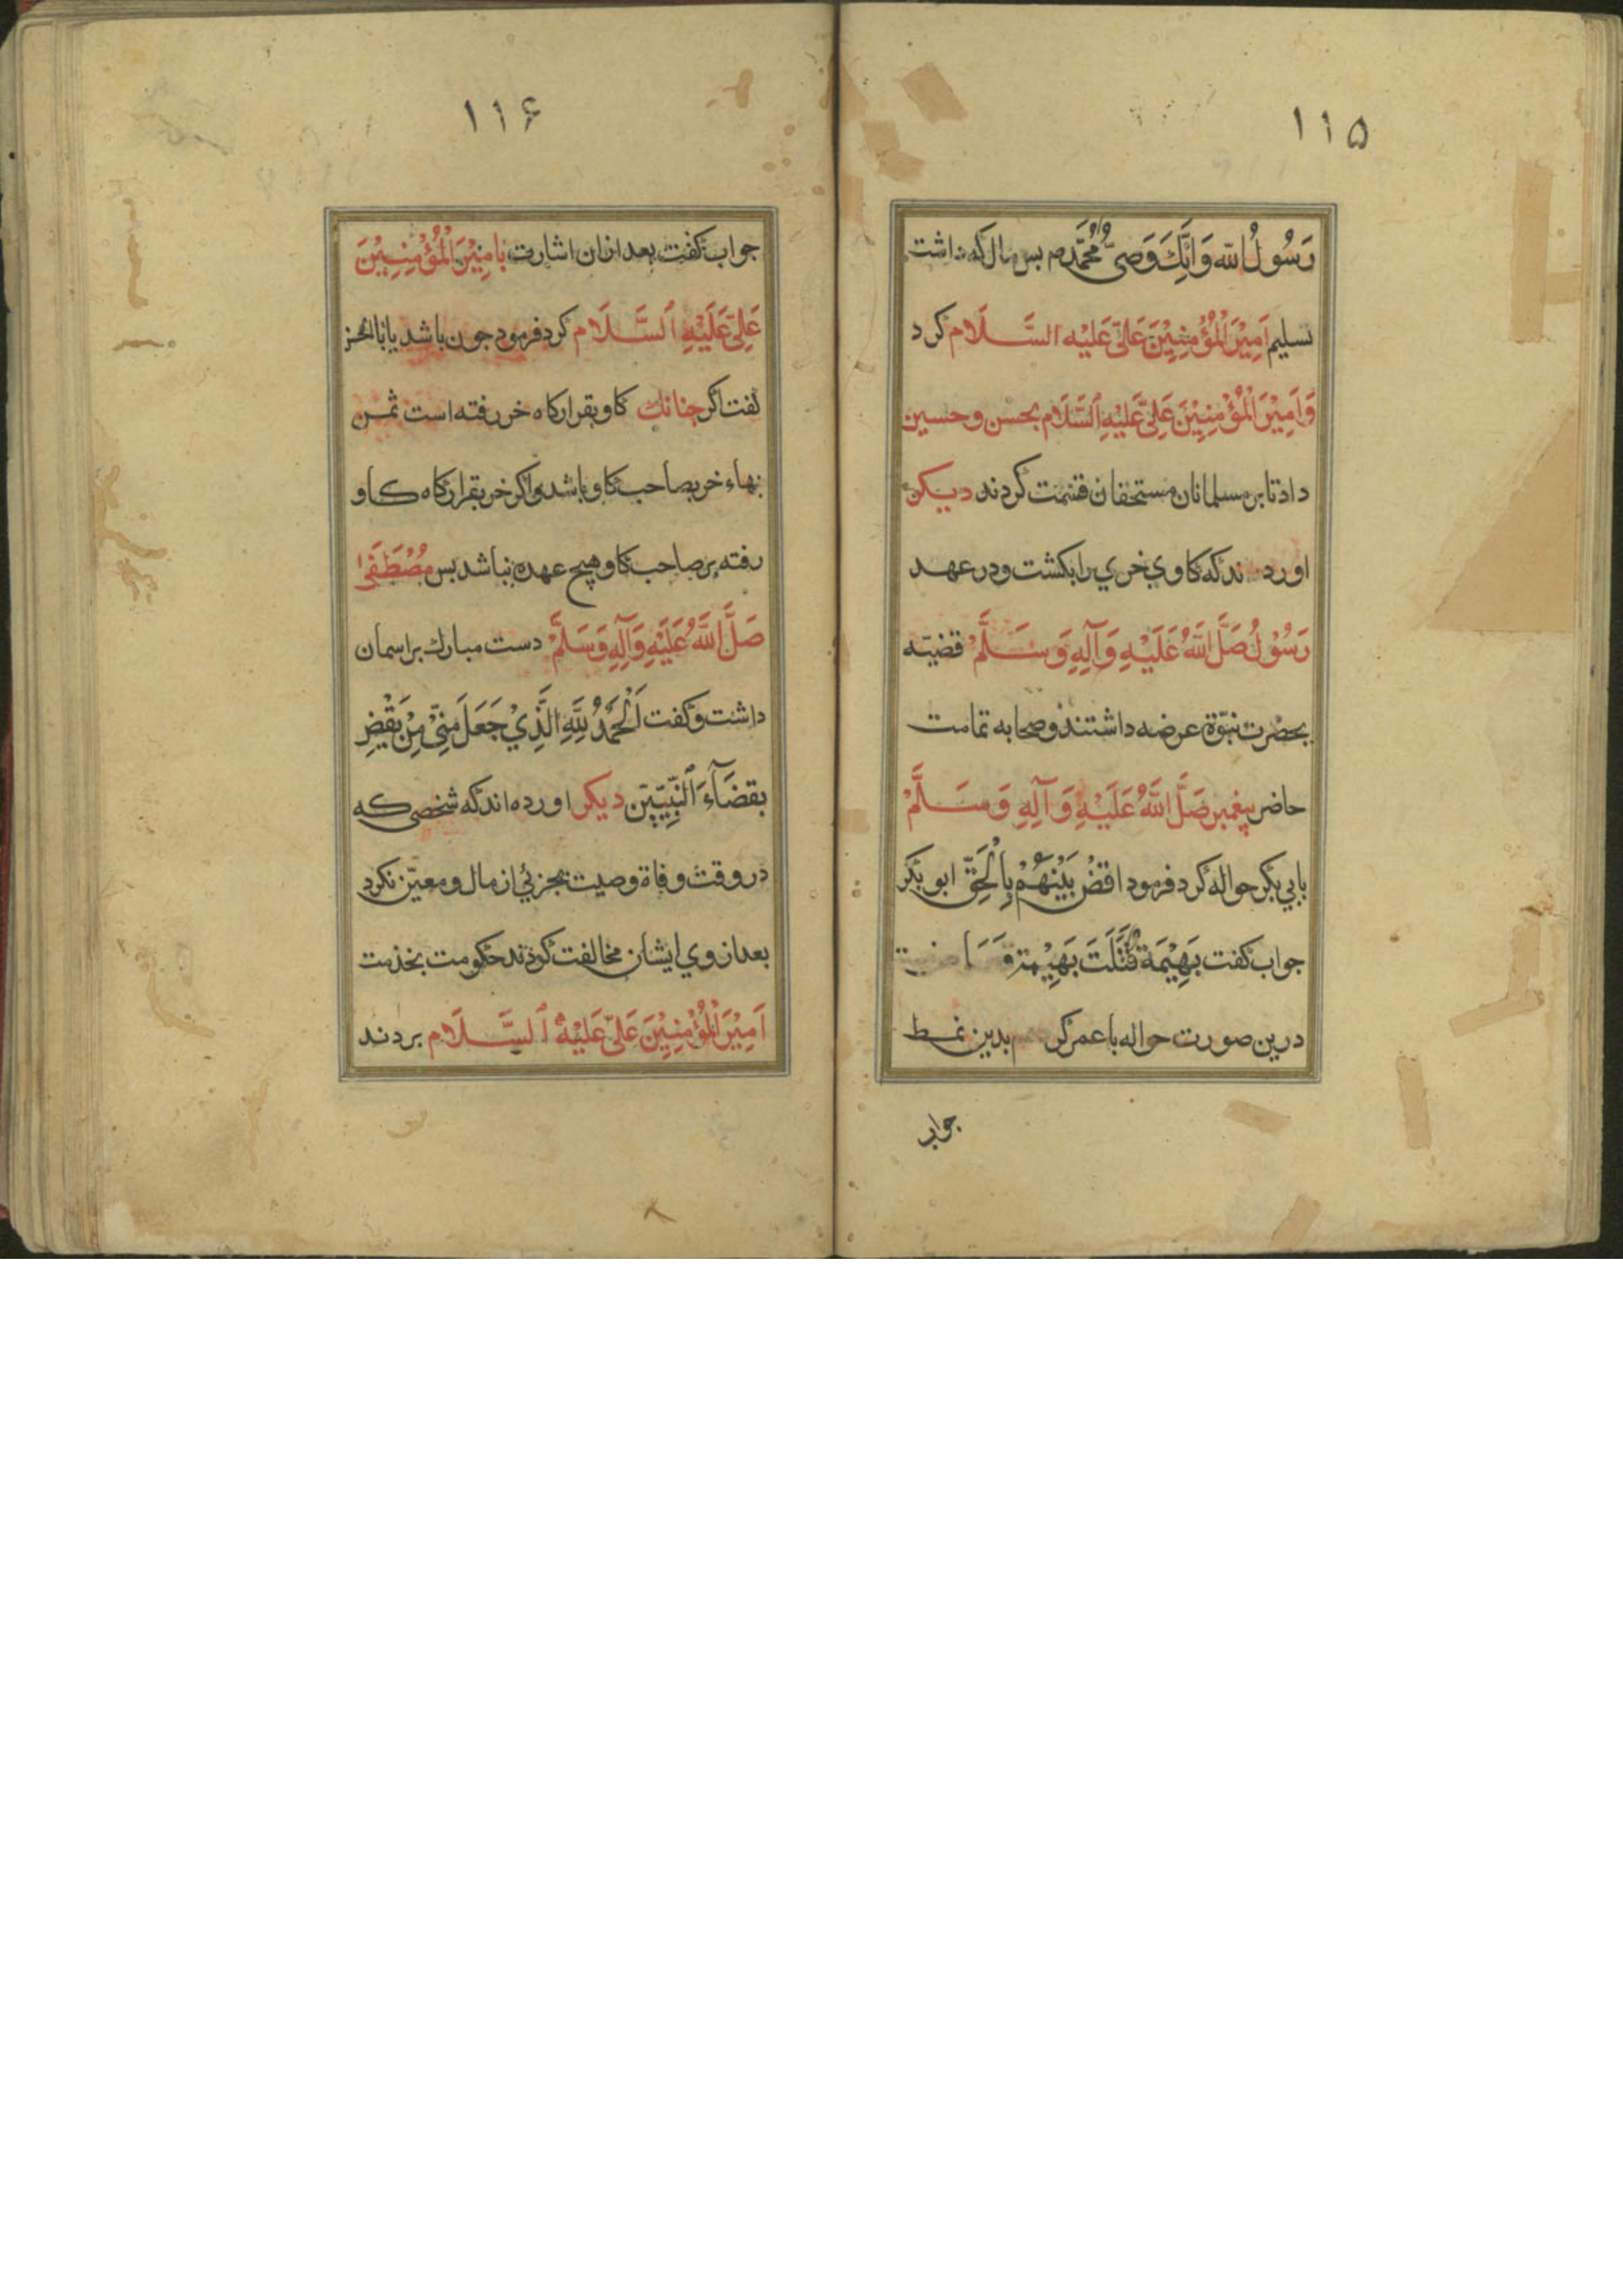 ۱۱۵
رَسُولُ الله وَاَنَّكَ وَصِیُّ مُحَمَّدٍ بس مال که داشت
تسلیم اَمِیْرَ الْمُؤْمِنِیْنَ عَلِیّ عَلَیْهِ السَّلَام کرد
وَاَمِیْرَ الْمُؤْمِنِیْنَ عَلِیّ عَلَیْهِ السَّلَام بحسن و حسین
داد تا بر مسلمانان مستحقان قسمت کردند دیکر
اورده اند که کاوی خری را بکشت و در عهد
رَسُوْلُ صَلَّ اللهُ عَلَیْهِ وَآلِهِ وَسَلَّمْ قضیّه
بحضرت نبوّة عرضه داشتند و صحابه تمامت
حاضر پیغمبر صَلَّ اللهُ عَلَیْهِ وَآلِهِ وَسَلَّمْ
بابی بکر حواله کرد فرمود اقضُ بَیْنَهُمْ بِالْحَقِّ ابو بکر
جواب کفت بَهِیْمَة قَتَلَتَ بَهِیْمة
درین صورت حواله با عمر کرد بدین نمط
جواب
۱۱۶
جواب کفت بعد ازان اشارت بامِیْرَ الْمُؤْمِنِیْنَ
عَلِیّ عَلَیْهِ اَلسَّلَام کرد فرمود جون باشد یا ابا الحسن
کفت اکر جنانك کاو بقرارکاه خر رفته است ثمن
بهاء خر بصاحب کاو باشد و اکر خر بقرارکاه کاو
رفته بر صاحب کاو هیچ عهده نباشد بس مُصْطَفَی
صَلَّ اللهُ عَلَیْهِ وَآلِهِ وَسَلَّمْ دست مبارك بر اسمان
داشت و کفت اَلْحَمْدُ لِلّهِ الَّذِیْ جَعَلَ مِنِّیْ مِنْ یَقْضِ
بقضَآءَ اَلنَّبِیِّیّن دیکر اورده اند که شخصی که
در وقت وفاة وصیت بجزئی از مال و معیّن نکرد
بعد از وی ایشان مخالفت کردند حکومت بخدمت
اَمِیْرَ الْمُؤْمِنِیْنَ عَلِیّ عَلَیْهُ اَلسَّلَام بردند